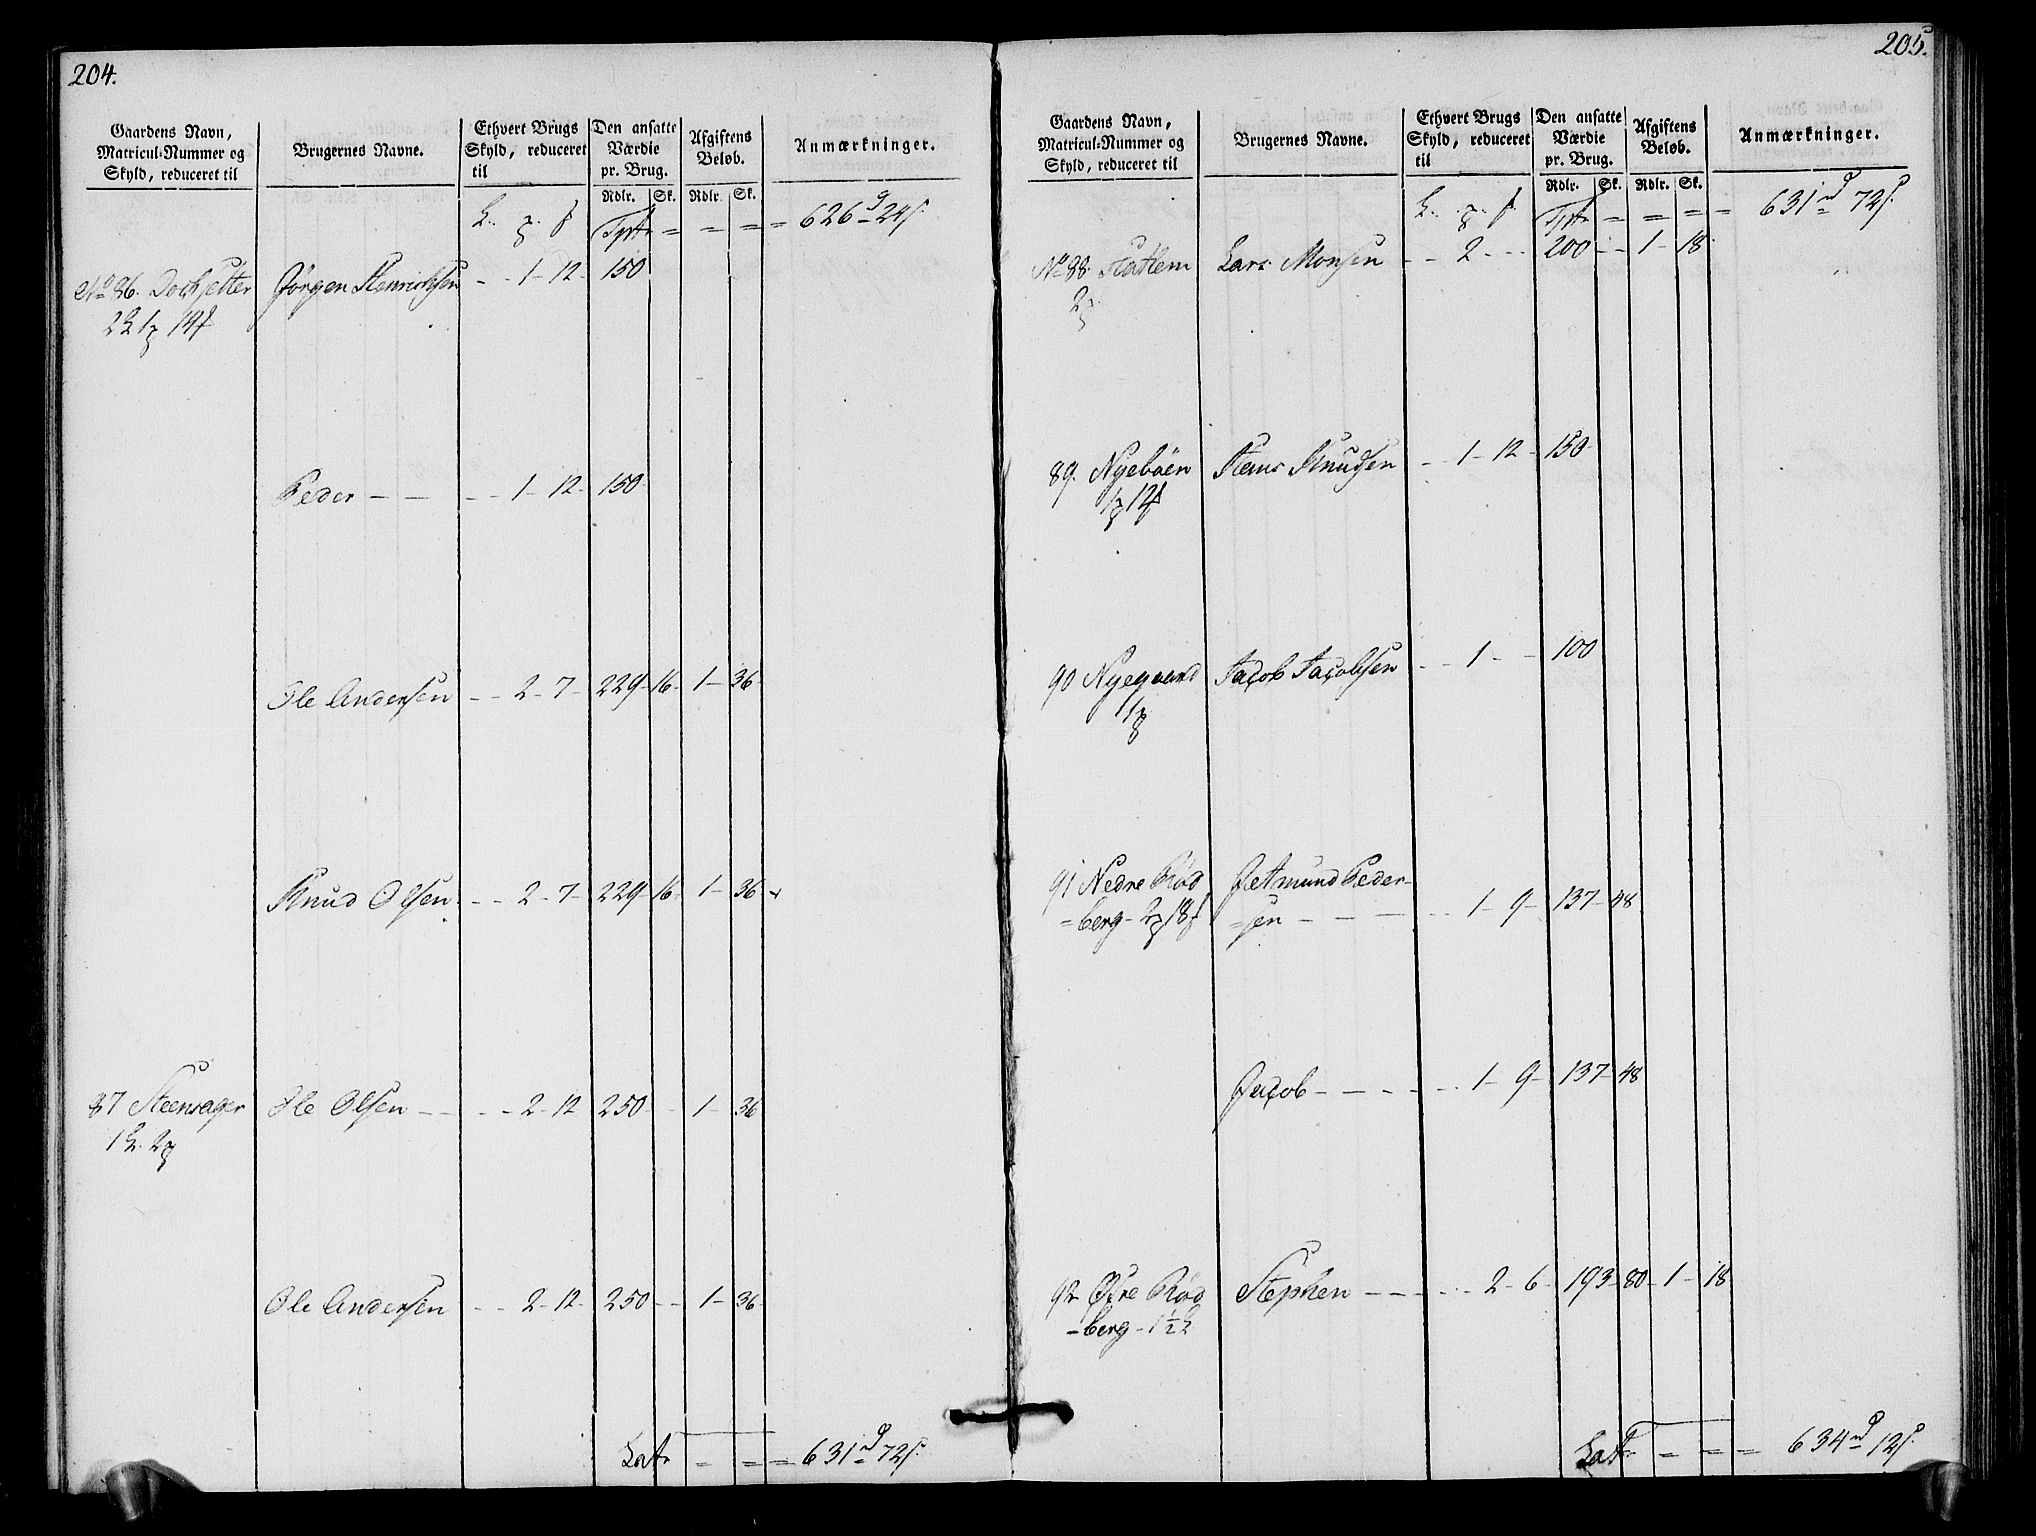 204.
Gaardens Navn, Matricul-Nummer og Skyld, reduceret til | Brugernes Navne. | Ethvert Brugs Skyld, reduceret til | Den ansatte Værdie pr. Brug. Rdlr. Sk. | Afgiftens Beløb. Rdlr. Sk. | Anmærkninger.
Tpt = = = = 626 24
No 86. Dochsetter Jørgen Henrichsen - - 1 - 12 - 150
Peder - - - - 1 - 12 - 150
Ole Andersen - - 2 - 7 - 229 - 16 - 1 - 36 -
Knud Olsen - - 2 - 7 - 229 - 16 - 1 - 36 -
87 Steensager Ole Olsen - - - - 2 - 12 250 - 1 - 36
Ole Andersen - - 2 - 12 - 250 - - 1 - 36 -
Lat = = = 631 72
205.
Gaardens Navn, Matricul-Nummer og Skyld, reduceret til | Brugernes Navne. | Ethvert Brugs Skyld, reduceret til | Den ansatte Værdie pr. Brug. Rdlr. Sk. | Afgiftens Beløb. Rdlr. Sk. | Anmærkninger.
Tpt = = = = 631 72
No 88. Hatlem Lars Monsen - - 2 - - - 200 - - 1 - 18
89. Nyebøen Hans Knudsen - - 1 - 12 - 150
90 Nyegaard Jacob Jacobsen - - 1 - - 100
91 Nedre Rød Amund Peder-
=berg - =sen - - - - 1 - 9 - 137 - 48
Jacob - - - - - 1 - 9 - 137 - 48
92 Øfre Rød Stephen - - - - - 2 - 6 - 193 - 80 - 1 - 18
-berg - 1½
Lat = = = 634 12